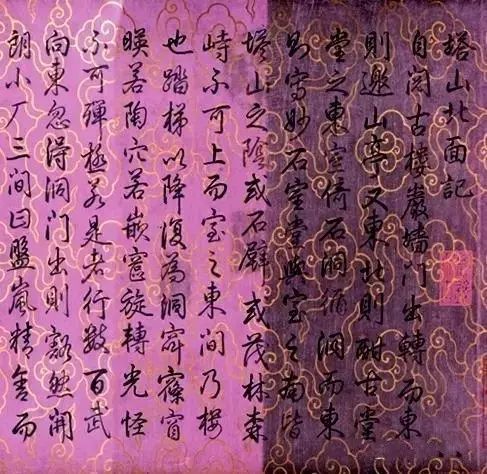 塔山北面記
自閱古樓巖墻門出轉而東
則邀山亭又東北則酣古堂
堂之東室倚石洞循洞而東
則寫妙石室堂與室之南皆
塔山之陰或石壁或茂林森
峙不可上而室之東間乃樓
也踏梯以降復為洞窱窅
暎若陶穴若嵌竇旋轉光怪
不可殫極若是者行數百武
向東忽得洞門出則豁然開
朗小厂三間曰盤嵐精舍而